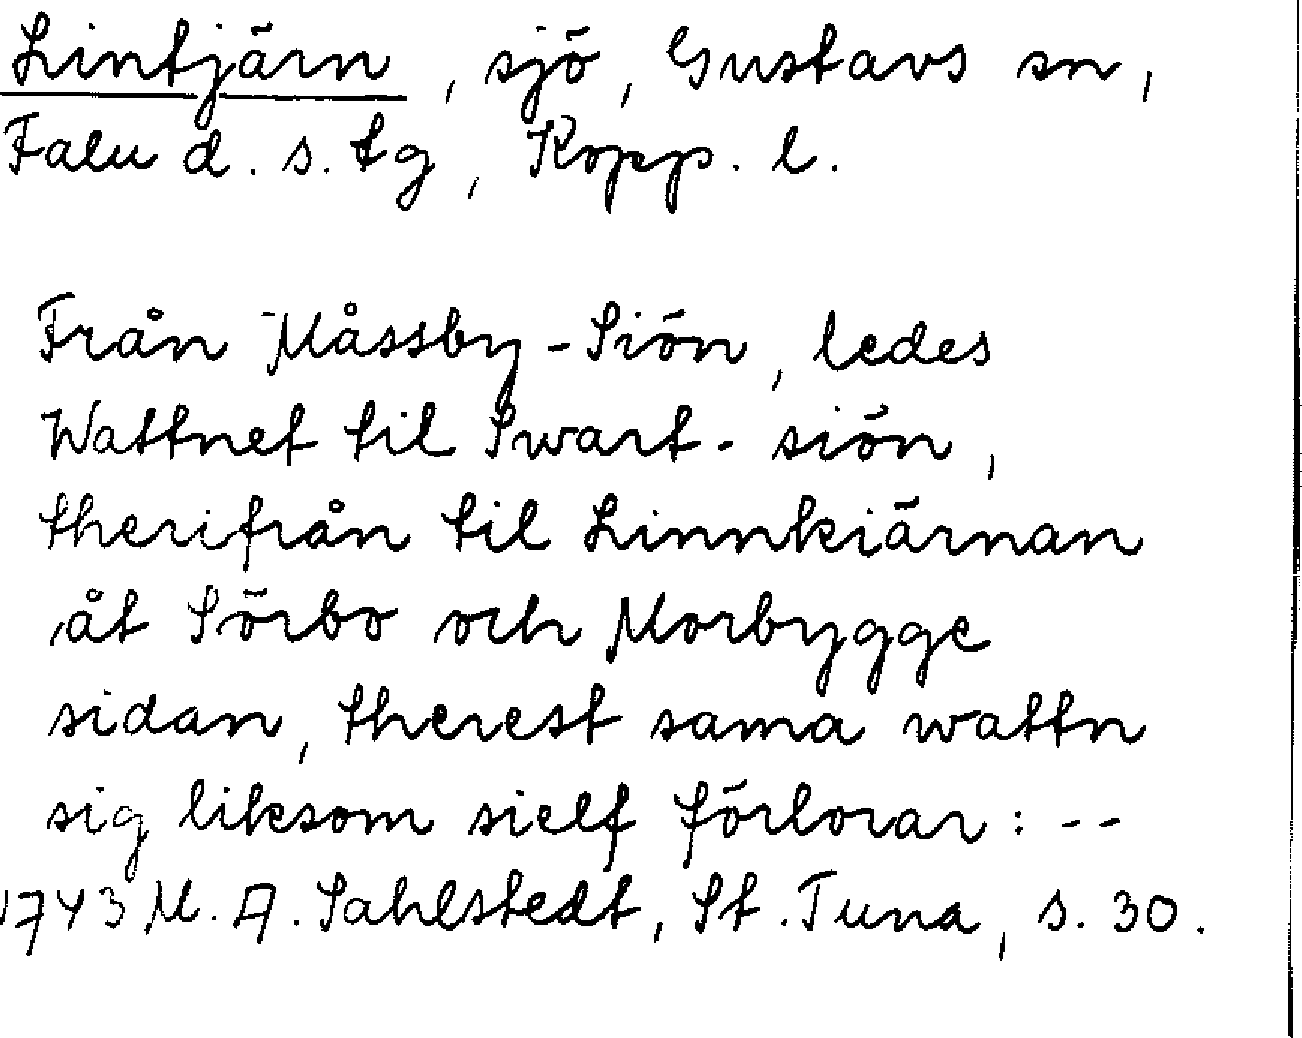 Lintjärn, sjö, Gustavs sn,
Falu d. s. tg, Kopp. l.
Från Måssby-Siön, ledes
Wattnet til Swart-siön,
therifrån til Linnkiärnan
åt Sörbo och Morbygge
sidan, therest sama wattn
sig liksom sielf förlorar: --
1743 M. A. Sahlstedt, St. Tuna, s. 30.